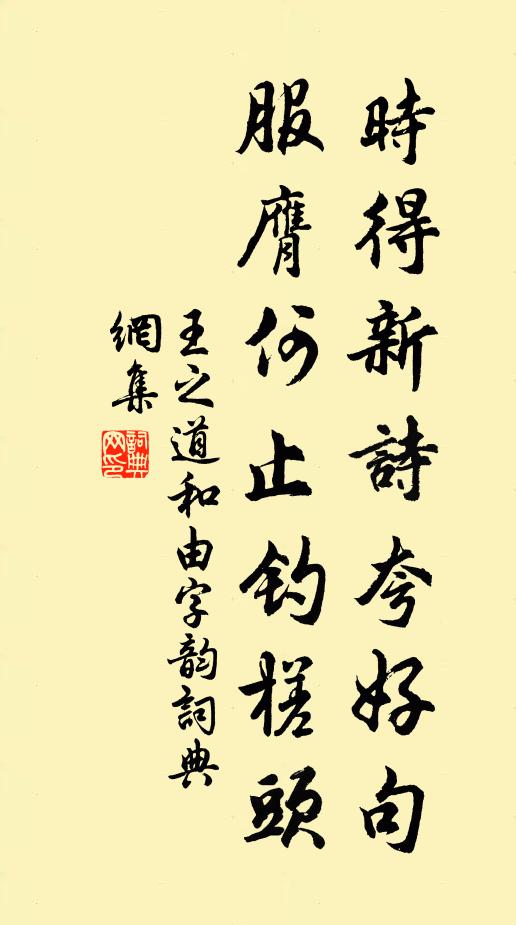 時得新詩夸好句
服膺何止釣槎頭
王之道和由字韵詞典
網集
詞典
网印